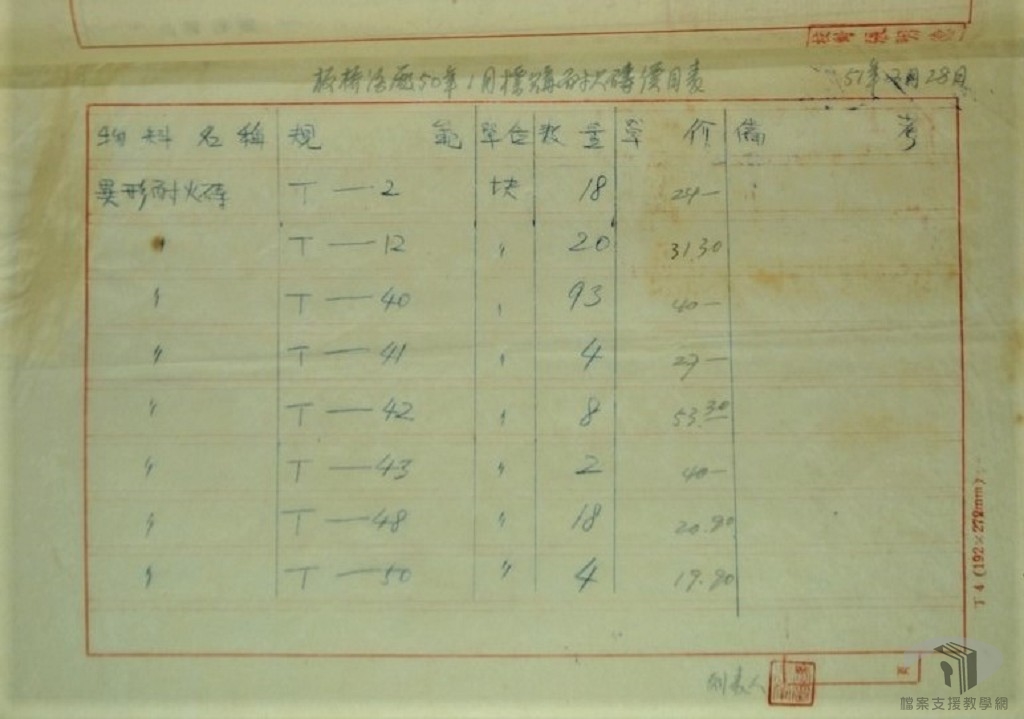 板橋酒廠50年1月標購耐火磚價目表 51年3月28日
物料名稱 規範 單位 數量 單价 備考
異形耐火磚 T—2 块 18 24—
〃 T—12 〃 20 31.30
〃 T—40 〃 93 40—
〃 T—41 〃 4 27—
〃 T—42 〃 8 53.30
〃 T—43 〃 2 40—
〃 T—48 〃 18 20.90
〃 T—50 〃 4 19.90
T4(192×272mm)
列表人
頁
檔案支援教學網